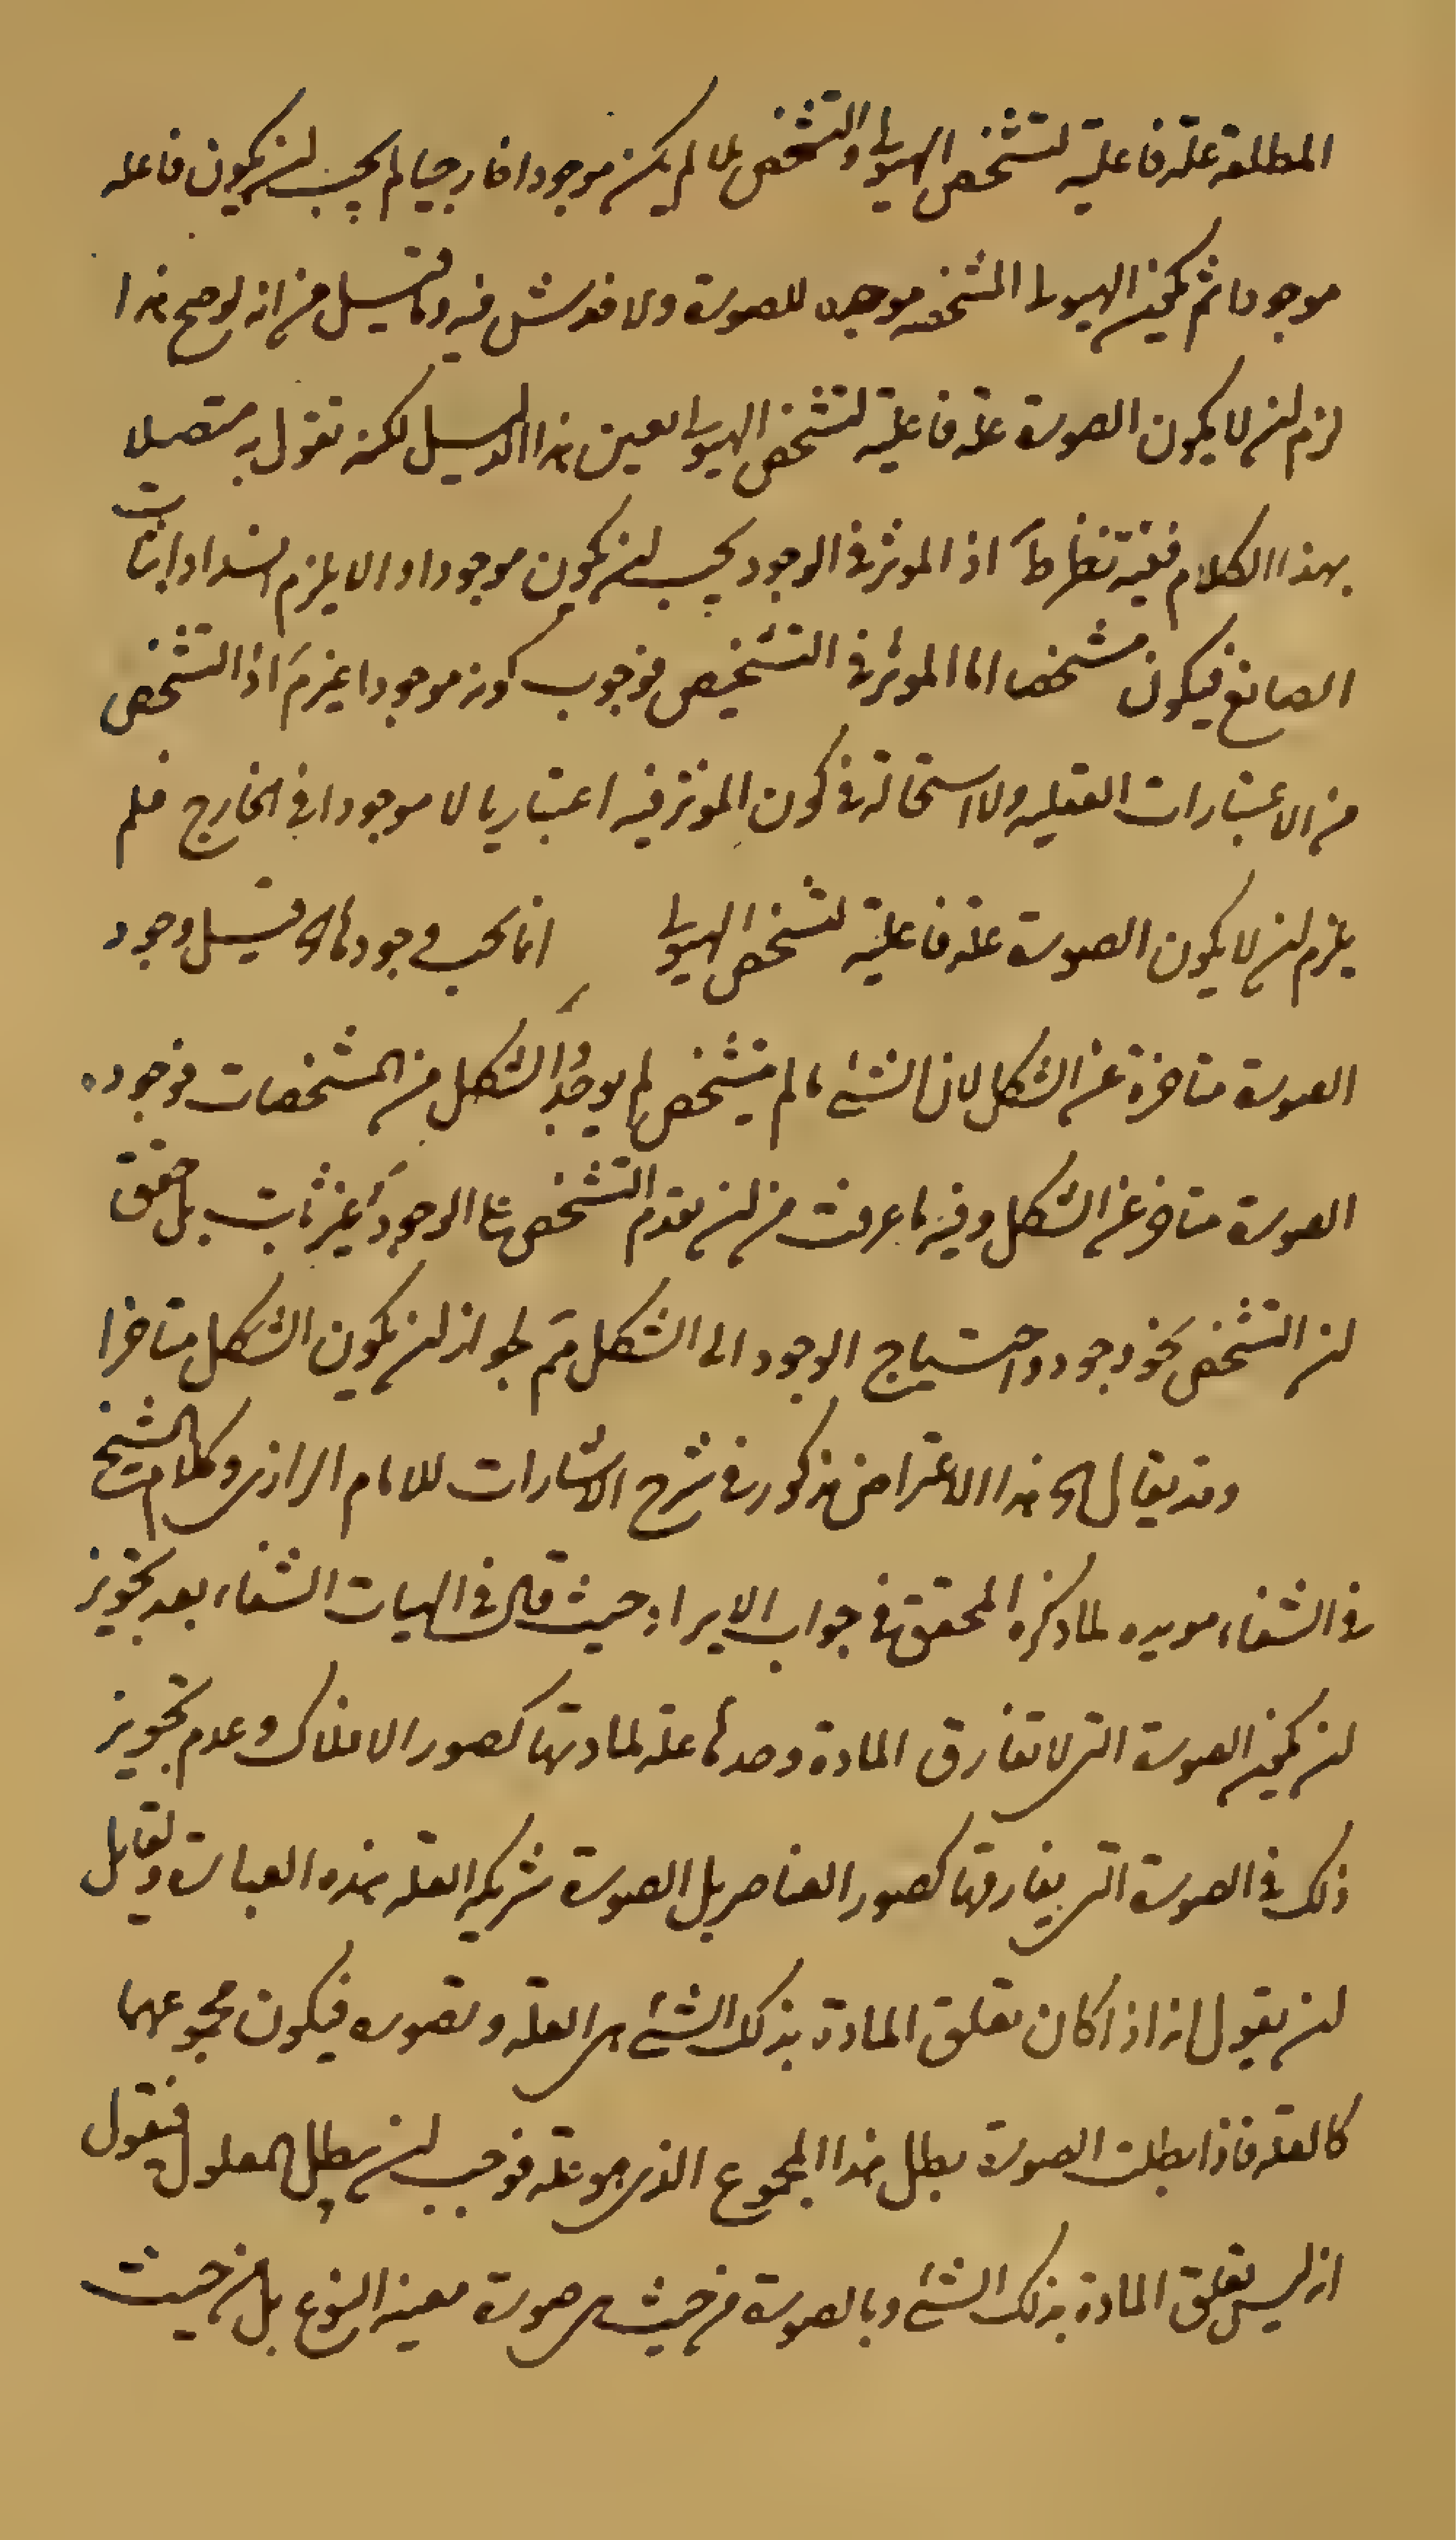 المطلقة علة فاعلية لتشخص الهيولى والتشخص لما لم يكن موجودا خارجيا لم يجب ان يكون فاعله
موجودا ثم يكون الهيولى المشخصه موجده للصورة ولا خدش فيه وما قيل من انه لو صح هذا
لزم ان لا يكون الصورة علة فاعلية لتشخص الهيولى بعين هذا الدليل لكنه نقول به متصلا
بهذا الكلام ففيه نظر ظ اذ الموثر في الوجود يجب ان يكون موجودا والا يلزم انسداد اثبات
الصانع فيكون مشخصا اما الموثر في التشخيص فوجوب كونه موجودا غير م اذ التشخص
من الاعتبارات العقليه ولا استحالة في كون الموثر فيه اعتباريا لا موجودا في الخارج فلم
يلزم ان لا يكون الصورة علة فاعلية لتشخص الهيولى انما يجب وجودها اه قيل وجود
الصورة متاخرة عن الشكل لان الشئ ما لم يتشخص لم يوجد والشكل من المشخصات فوجوده
الصورة متاخر عن الشكل وفيه ما عرفت من ان تقدم التشخص على الوجود غير ثابت بل حقق
ان التشخص نحو وجود واحتياج الوجود الى الشكل مم لجواز ان يكون الشكل متاخرا
وقد يقال الخ هذا الاعتراض مذكور في شرح الاشارات للامام الرازي وكلام الشيخ
في الشفاء مويده لما ذكره المحقق في جواب الايراد حيث قال في الهيات الشفاء بعد تجويز
ان يكون الصورة التي لا تفارق المادة وحدها علة لمادتها كصور الافلاك وعدم تجويز
ذلك في الصورة التي يفارقها كصور العناصر بل الصورة شريكه العله بهذه العبارة ولقايل
ان يقول انه اذا كان تعلق المادة بذلك الشئ هي العله وبصوره فيكون مجموعهما
كالعله فاذا بطلت الصورة بطل هذا المجموع الذي هو علة فوجب ان يبطل المعلول فنقول
انه ليس تعلق المادة بذلك الشئ وبالصورة من حيث هي صورة معينه النوع بل من حيث